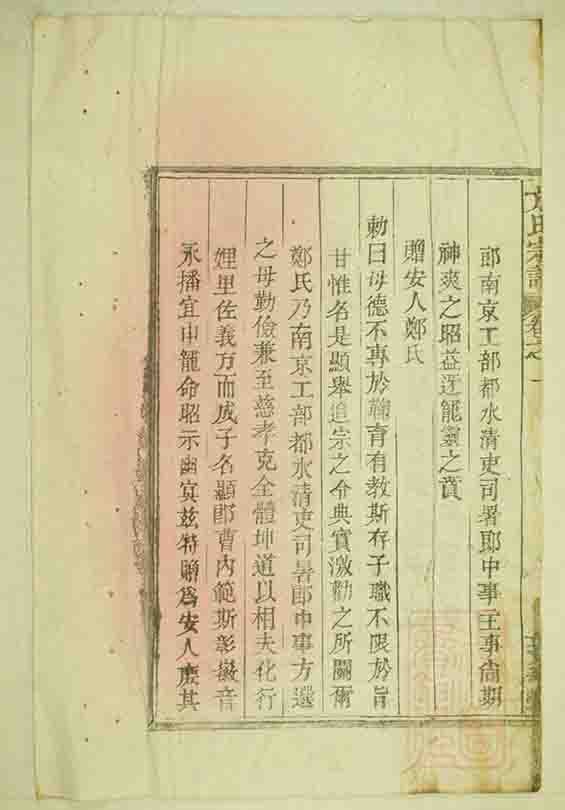 方氏宗譜 卷之一
郎南京工部都水清吏司署郎中事主事尚期
神爽之昭益迓寵靈之賁
贈安人鄭氏
勅曰母德不專於鞠育有教斯存子職不限於旨
甘惟名是顯舉追崇之令典實激勸之所關爾
鄭氏乃南京工部都水清吏司署郎中事方選
之母勤儉兼至慈孝克全體坤道以相夫化行
娌里佐義方而成子名顯郎曹內範斯彰徽音
永播宜申寵命昭示幽冥茲特贈爲安人庶其